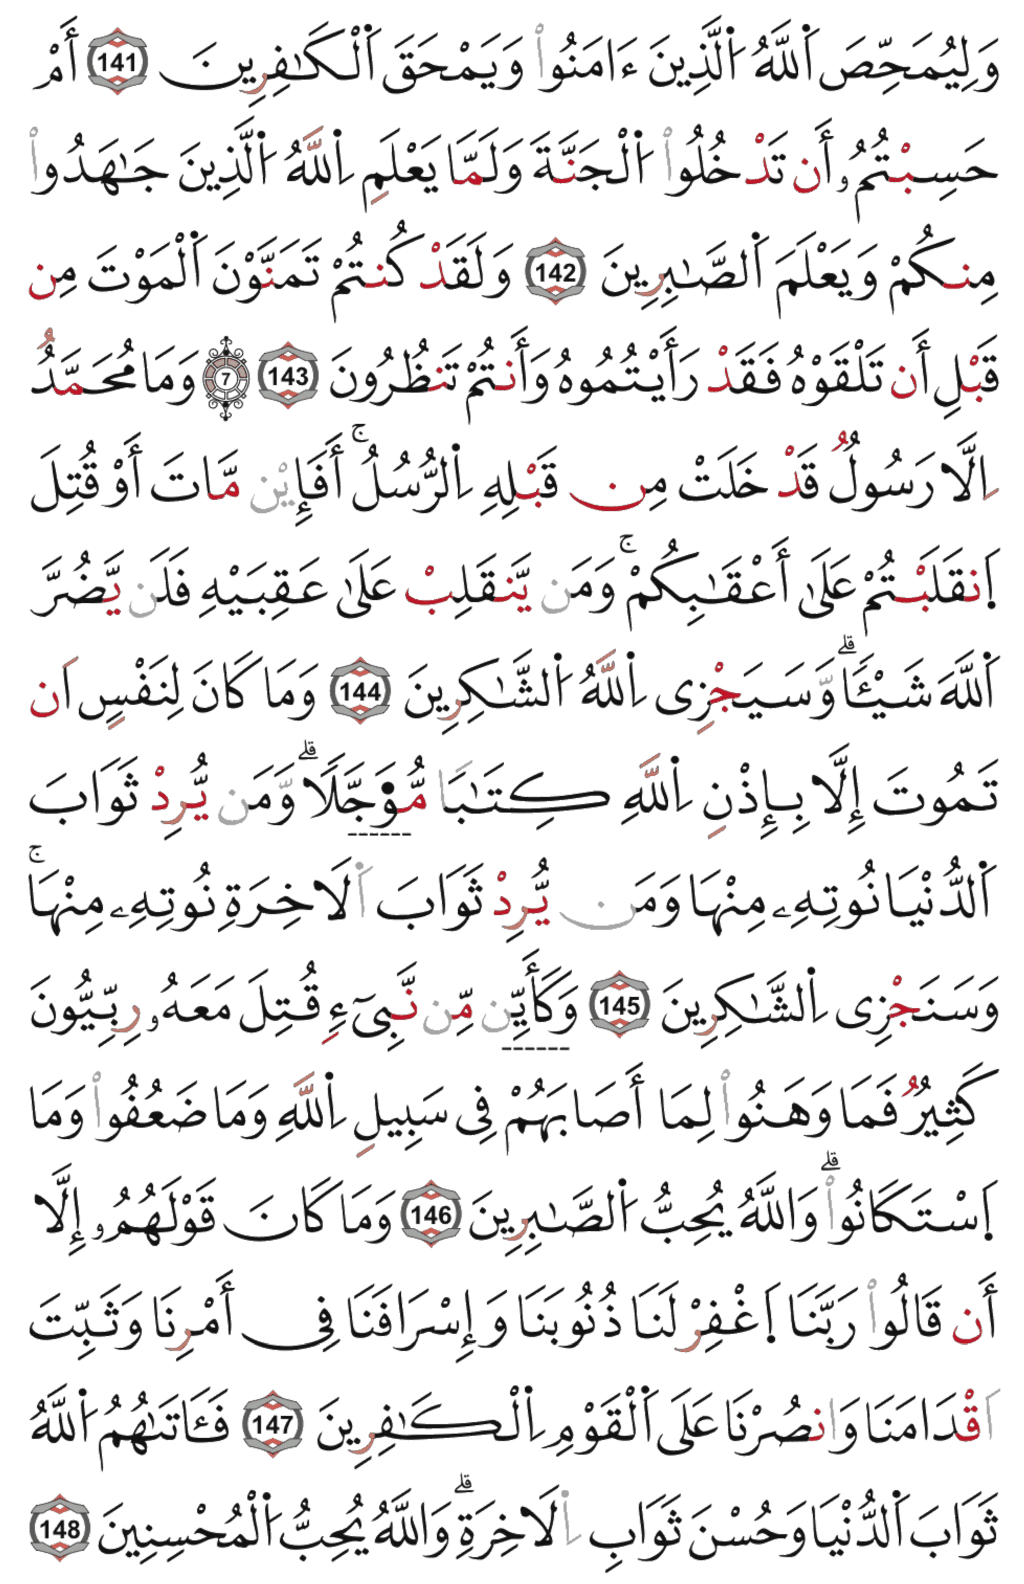 وَلِيُمَحِّصَ اَ۬للَّهُ اُ۬لَّذِينَ ءَامَنُواْ وَيَمْحَقَ اَ۬لْكَٰفِرِينَ 141 أَمْ
حَسِبْتُمُۥ أَن تَدْخُلُواْ اُ۬لْجَنَّةَ وَلَمَّا يَعْلَمِ اِ۬للَّهُ اُ۬لَّذِينَ جَٰهَدُواْ
مِنكُمْ وَيَعْلَمَ اَ۬لصَّٰبِرِينَ 142 وَلَقَدْ كُنتُمْ تَمَنَّوْنَ اَ۬لْمَوْتَ مِن
قَبْلِ أَن تَلْقَوْهُ فَقَدْ رَأَيْتُمُوهُ وَأَنتُمْ تَنظُرُونَ 143 7 وَمَا مُحَمَّدٌ
اِلَّا رَسُولٌ قَدْ خَلَتْ مِن قَبْلِهِ اِ۬لرُّسُلُ ۚ أَفَإِيْن مَّاتَ أَوْ قُتِلَ
اَ۪نقَلَبْتُمْ عَلَىٰ أَعْقَٰبِكُمْ ۚ وَمَن يَّنقَلِبْ عَلَىٰ عَقِبَيْهِ فَلَن يَّضُرَّ
اَ۬للَّهَ شَيْـًٔا ۗ وَّسَيَجْزِى اِ۬للَّهُ اُ۬لشَّٰكِرِينَ 144 وَمَا كَانَ لِنَفْسٍ اَن
تَمُوتَ إِلَّا بِإِذْنِ اِ۬للَّهِ كِتَٰبًا مُّوَجَّلًا ۗ وَّمَن يُّرِدْ ثَوَابَ
اَ۬لدُّنْيَا نُوتِهِۦ مِنْهَا وَمَن يُّرِدْ ثَوَابَ اَ۬لَاخِرَةِ نُوتِهِۦ مِنْهَا ۚ
وَسَنَجْزِى اِ۬لشَّٰكِرِينَ 145 وَكَأَيِّن مِّن نَّبِىٓءٍ قُتِلَ مَعَهُۥ رِبِّيُّونَ
كَثِيرٌ فَمَا وَهَنُواْ لِمَا أَصَابَهُمْ فِى سَبِيلِ اِ۬للَّهِ وَمَا ضَعُفُواْ وَمَا
اَ۪سْتَكَانُواْ ۗ وَاللَّهُ يُحِبُّ اُ۬لصَّٰبِرِينَ 146 وَمَا كَانَ قَوْلَهُمُۥ إِلَّا
أَن قَالُواْ رَبَّنَا اَ۪غْفِرْ لَنَا ذُنُوبَنَا وَإِسْرَافَنَا فِى أَمْرِنَا وَثَبِّتَ
اَقْدَامَنَا وَانصُرْنَا عَلَى اَ۬لْقَوْمِ اِ۬لْكَٰفِرِينَ 147 فَـَٔاتَىٰهُمُ اُ۬للَّهُ
ثَوَابَ اَ۬لدُّنْيَا وَحُسْنَ ثَوَابِ اِ۬لَاخِرَةِ ۗ وَاللَّهُ يُحِبُّ اُ۬لْمُحْسِنِينَ 148